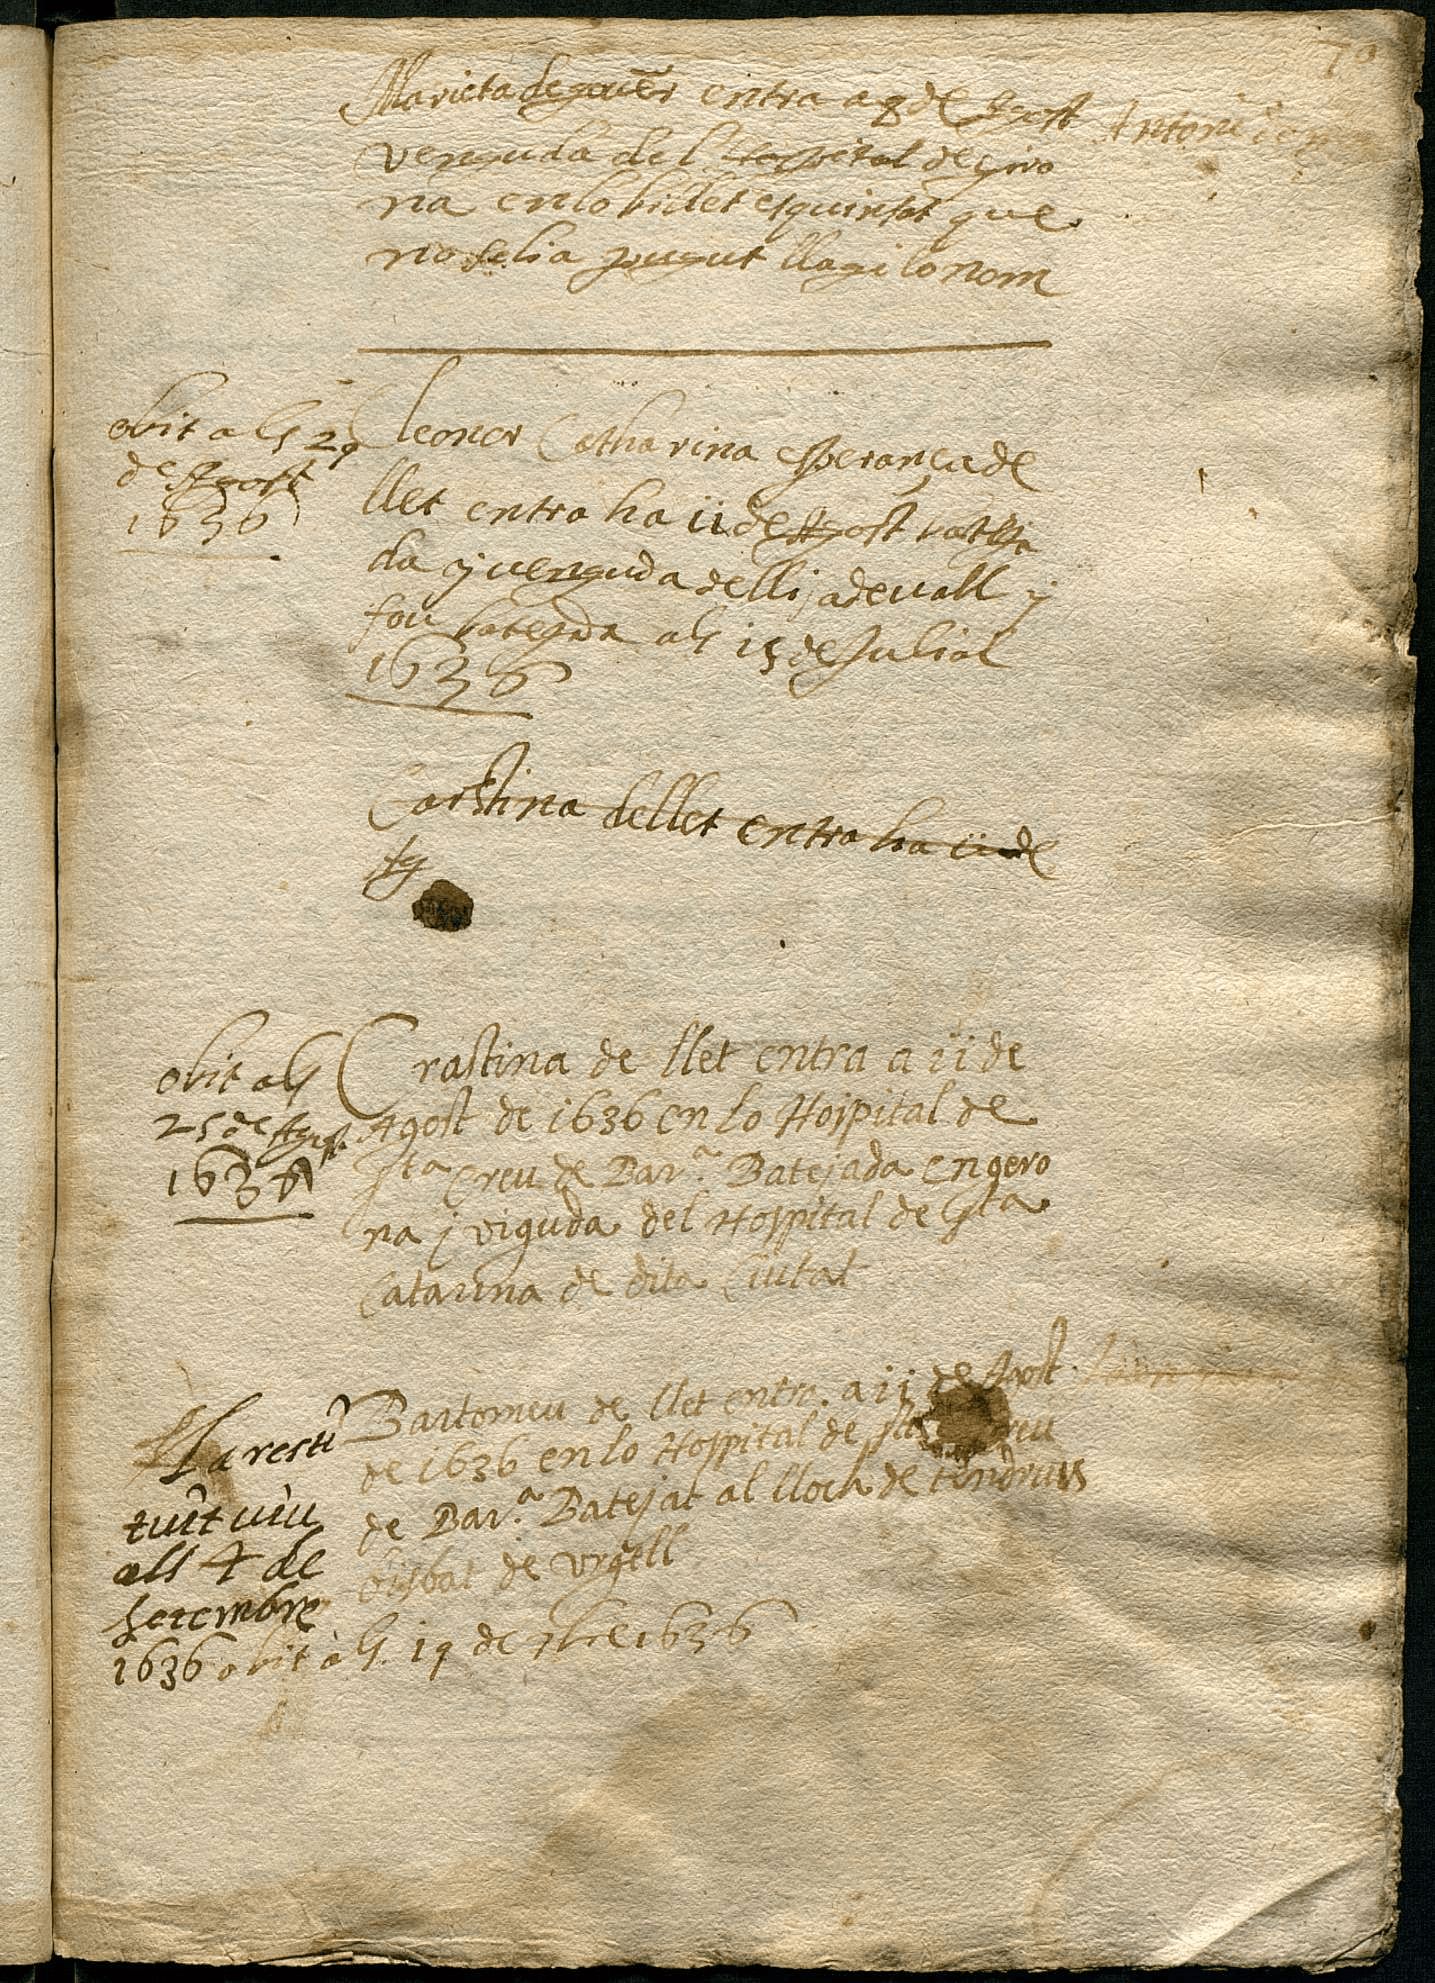 70
Marieta de gover entra a 8 de Agost
venguda del Hospital de giro
na en lo billet esquinsat que
no se lia pugut llagi lo nom
Antoni
obit als 29
de Agost
1636
Eleonor Catharina esperança de
llet entra ha ii de Agost
da y venguda de llijadevall y
fou bategada als 15 de Juliol
1636
Carstina de llet entra ha ii de
Ag
obit als
25 de Agost
1636
Crastina de llet entra a ii de
Agost de 1636 en lo Hospital de
Sta Creu de Bar.ª Batejada en gero
na j viguda del Hospital de Sta
Catarina de dita Ciutat
Bartomeu de llet entra a ii de Agost
de 1636 en lo Hospital de Sta Creu
de Bar.ª Batejat al lloch de tendruis
bisbat de urgell
La resti
tuit viu
als 4 de
setembre
1636 obit als 19 de 7bre 1636